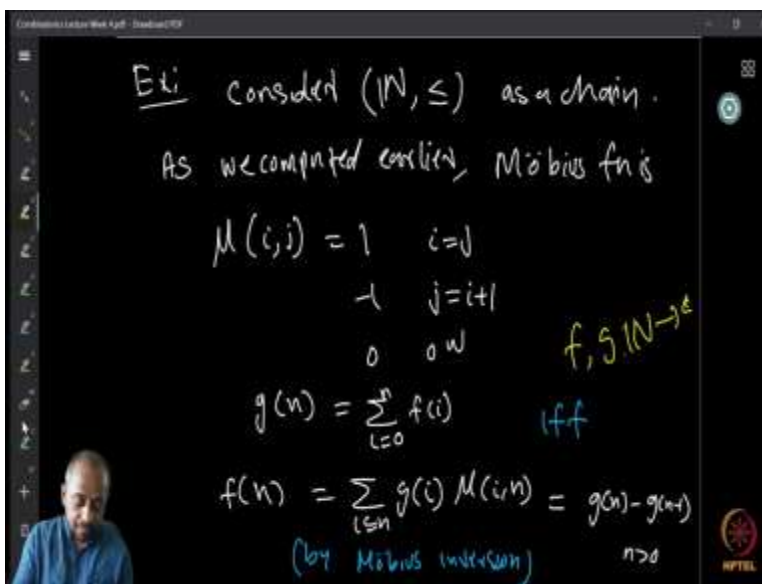 Combinatorics Lecture Week 4.pdf - Drawboard PDF
Ex: Consider (ℕ, ≤) as a chain.
As we computed earlier, Möbius fn is
μ(i,j) = 1   i=j
-1   j=i+1
0   o w
f, g: ℕ→
g(n) = ∑_{i=0}^{n} f(i)   iff
f(n) = ∑_{i≤n} g(i) μ(i,n) = g(n) - g(n-1)
(by Möbius inversion)   n>0
NPTEL